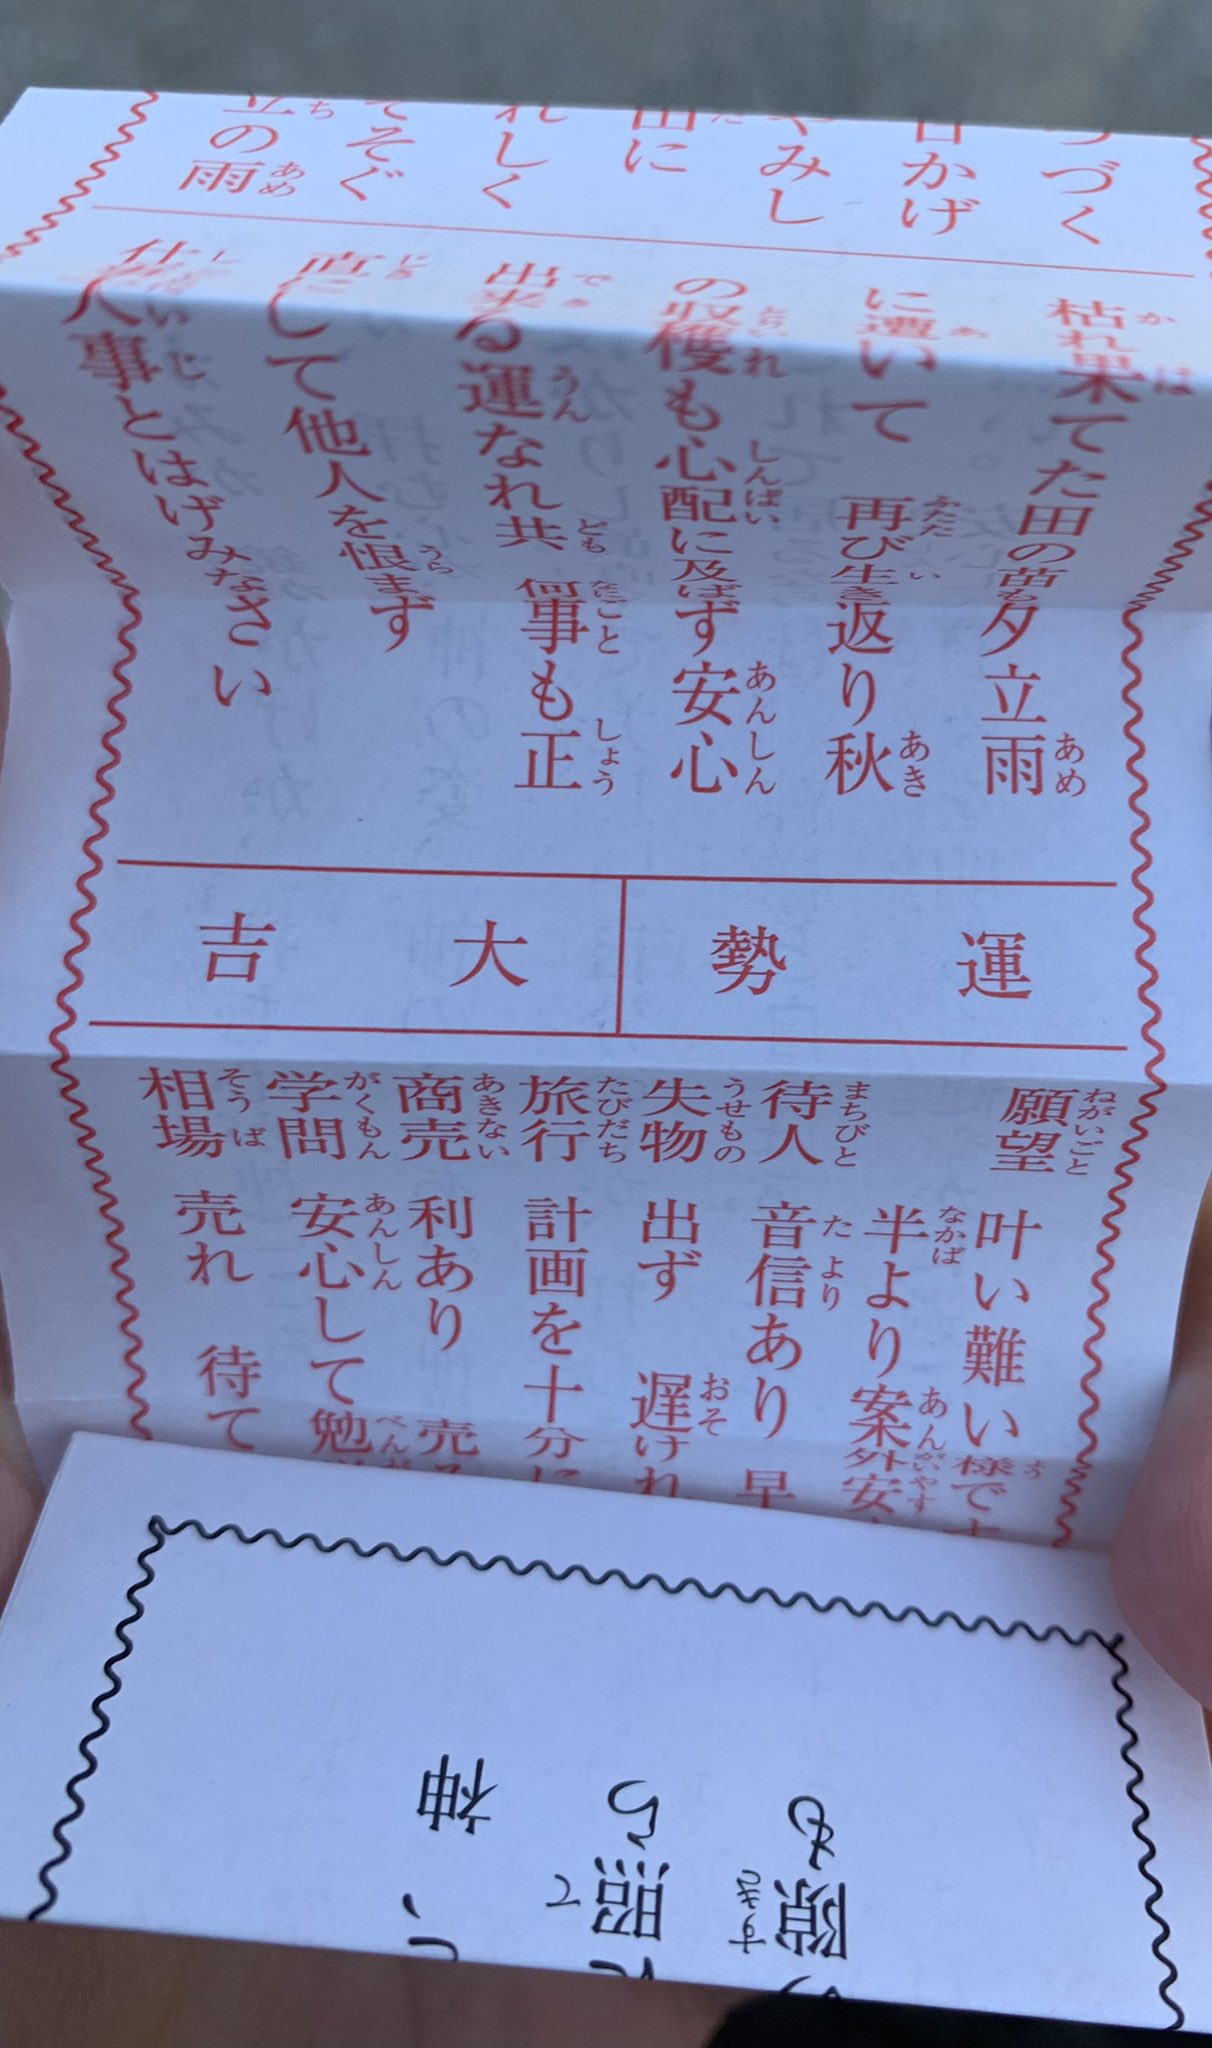 づく
日かげ
やみし
田に
れしく
てそぐ
立の雨
枯れ果てた田の苗も夕立雨
に遭いて　再び生き返り秋
の収穫も心配に及ばず安心
出来る運なれ共　何事も正
直にして他人を恨まず
仕事大事とはげみなさい
運勢　大吉
願望　叶い難い様です
半より案外安
待人　音信あり　早
失物　出ず　遅けれ
旅行　計画を十分に
商売　利あり　売
学問　安心して勉
相場　売れ　待て
隙も
照ら
て
神